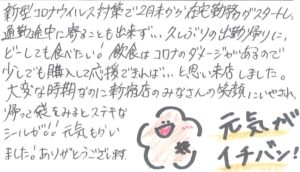 新型コロナウイルス対策で2月末から在宅勤務がスタートし、
通勤途中に寄ることも出来ず…久しぶりの出勤帰りに、
どーしても食べたい! 飲食はコロナのダメージがあるので
少しでも購入して応援できれば…と思い来店しました。
大変な時期なのに新宿店のみなさんの笑顔にいやされ、
帰って袋をみるとステキな
シールが!! 元気もらい
ました! ありがとうございます
元気が
イチバン!